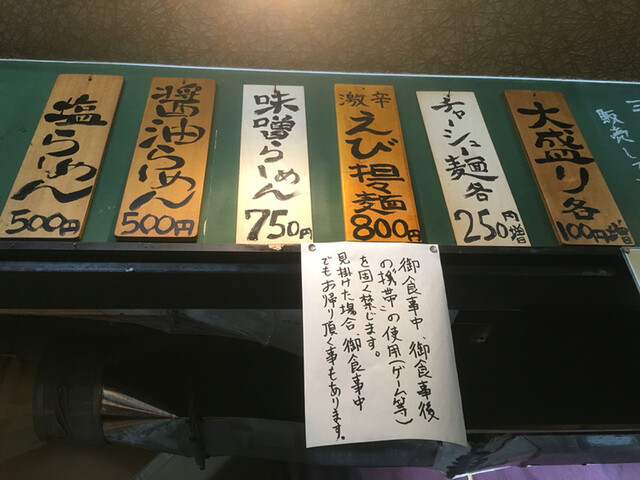 塩らーめん
500円
醤油らーめん
500円
味噌らーめん
750円
激辛
えび担々麺
800円
チャーシュー麺各
250円増
大盛り各
100円増
販売し
御食事中、御食事後
の"携帯"の使用(ゲーム等)
を固く禁じます。
見掛けた場合、御食事中
でもお帰り頂く事もあります。